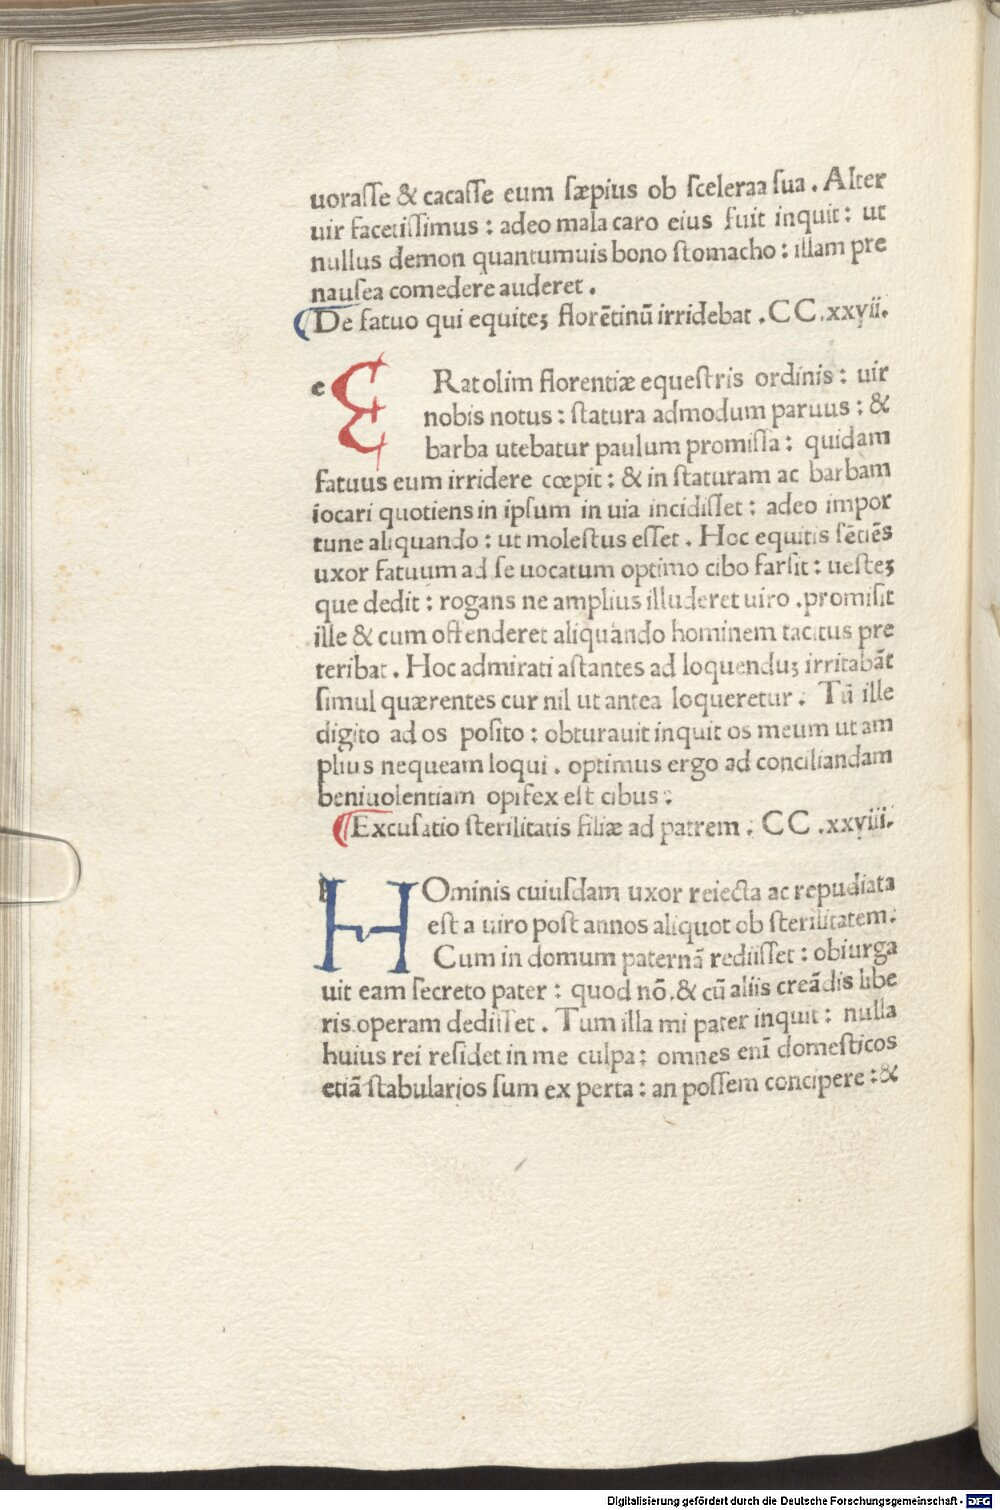 uorasse & cacasse eum sæpius ob sceleraa sua . Alter
uir facetissimus : adeo mala caro eius fuit inquit : ut
nullus demon quantumuis bono stomacho : illam pre
nausea comedere auderet .
De fatuo qui equiteʒ florētinū irridebat . CC .xxvii.
e E Rat olim florentiæ equestris ordinis : uir
nobis notus : statura admodum paruus : &
barba utebatur paulum promissa : quidam
fatuus eum irridere cœpit : & in staturam ac barbam
iocari quotiens in ipsum in uia incidisset : adeo impor
tune aliquando : ut molestus esset . Hoc equitis sētiēs
uxor fatuum ad se uocatum optimo cibo farsit : uesteʒ
que dedit : rogans ne amplius illuderet uiro .promisit
ille & cum ostenderet aliquando hominem tacitus pre
teribat . Hoc admirati astantes ad loquenduʒ irritabāt
simul quærentes cur nil ut antea loqueretur . Tū ille
digito ad os posito : obturauit inquit os meum ut am
plius nequeam loqui . optimus ergo ad conciliandam
beniuolentiam opifex est cibus :
Excusatio sterilitatis filiæ ad patrem . CC .xxviii.
H Ominis cuiusdam uxor reiecta ac repudiata
est a uiro post annos aliquot ob sterilitatem .
Cum in domum paternā rediisset : obiurga
uit eam secreto pater : quod nō .& cū aliis creādis libe
ris operam dedisset . Tum illa mi pater inquit : nulla
huius rei residet in me culpa : omnes enī domesticos
etiā stabularios sum ex perta : an possem concipere : &
Digitalisierung gefördert durch die Deutsche Forschungsgemeinschaft - DFG